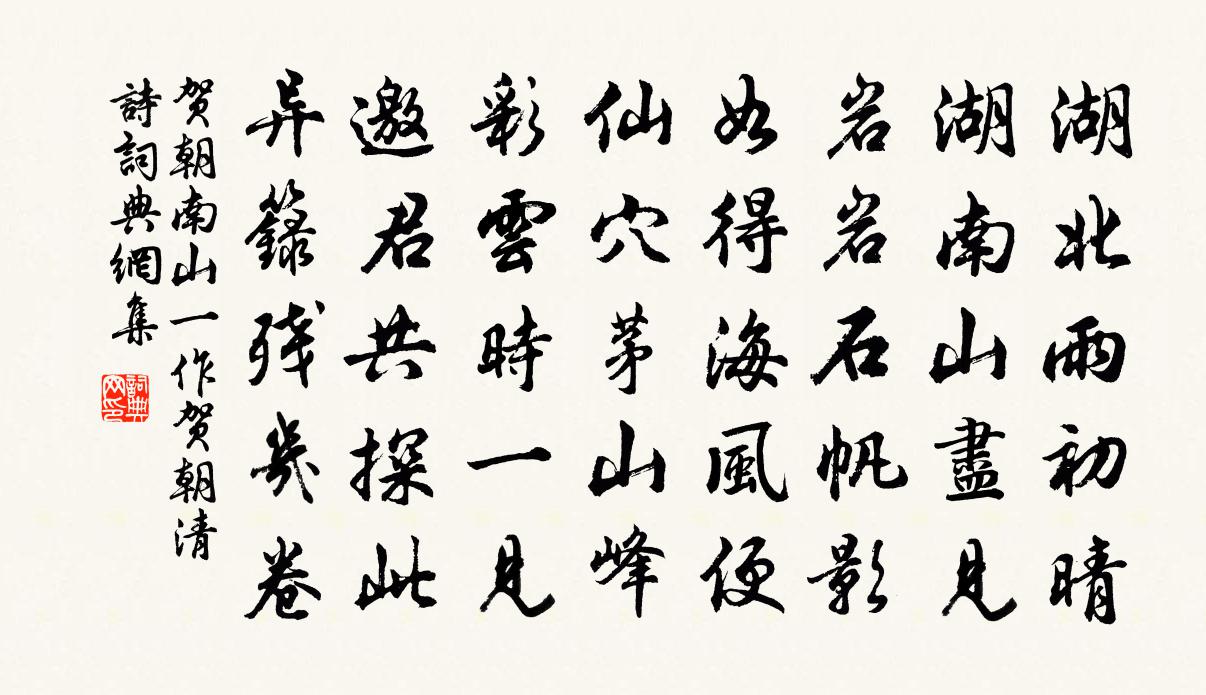 湖北雨初晴
湖南山盡見
岩岩石帆影
如得海風便
仙穴茅山峰
彩雲時一見
邀君共探此
异籙残幾卷
贺朝南山一作贺朝清
詩詞典網集
詞典网印